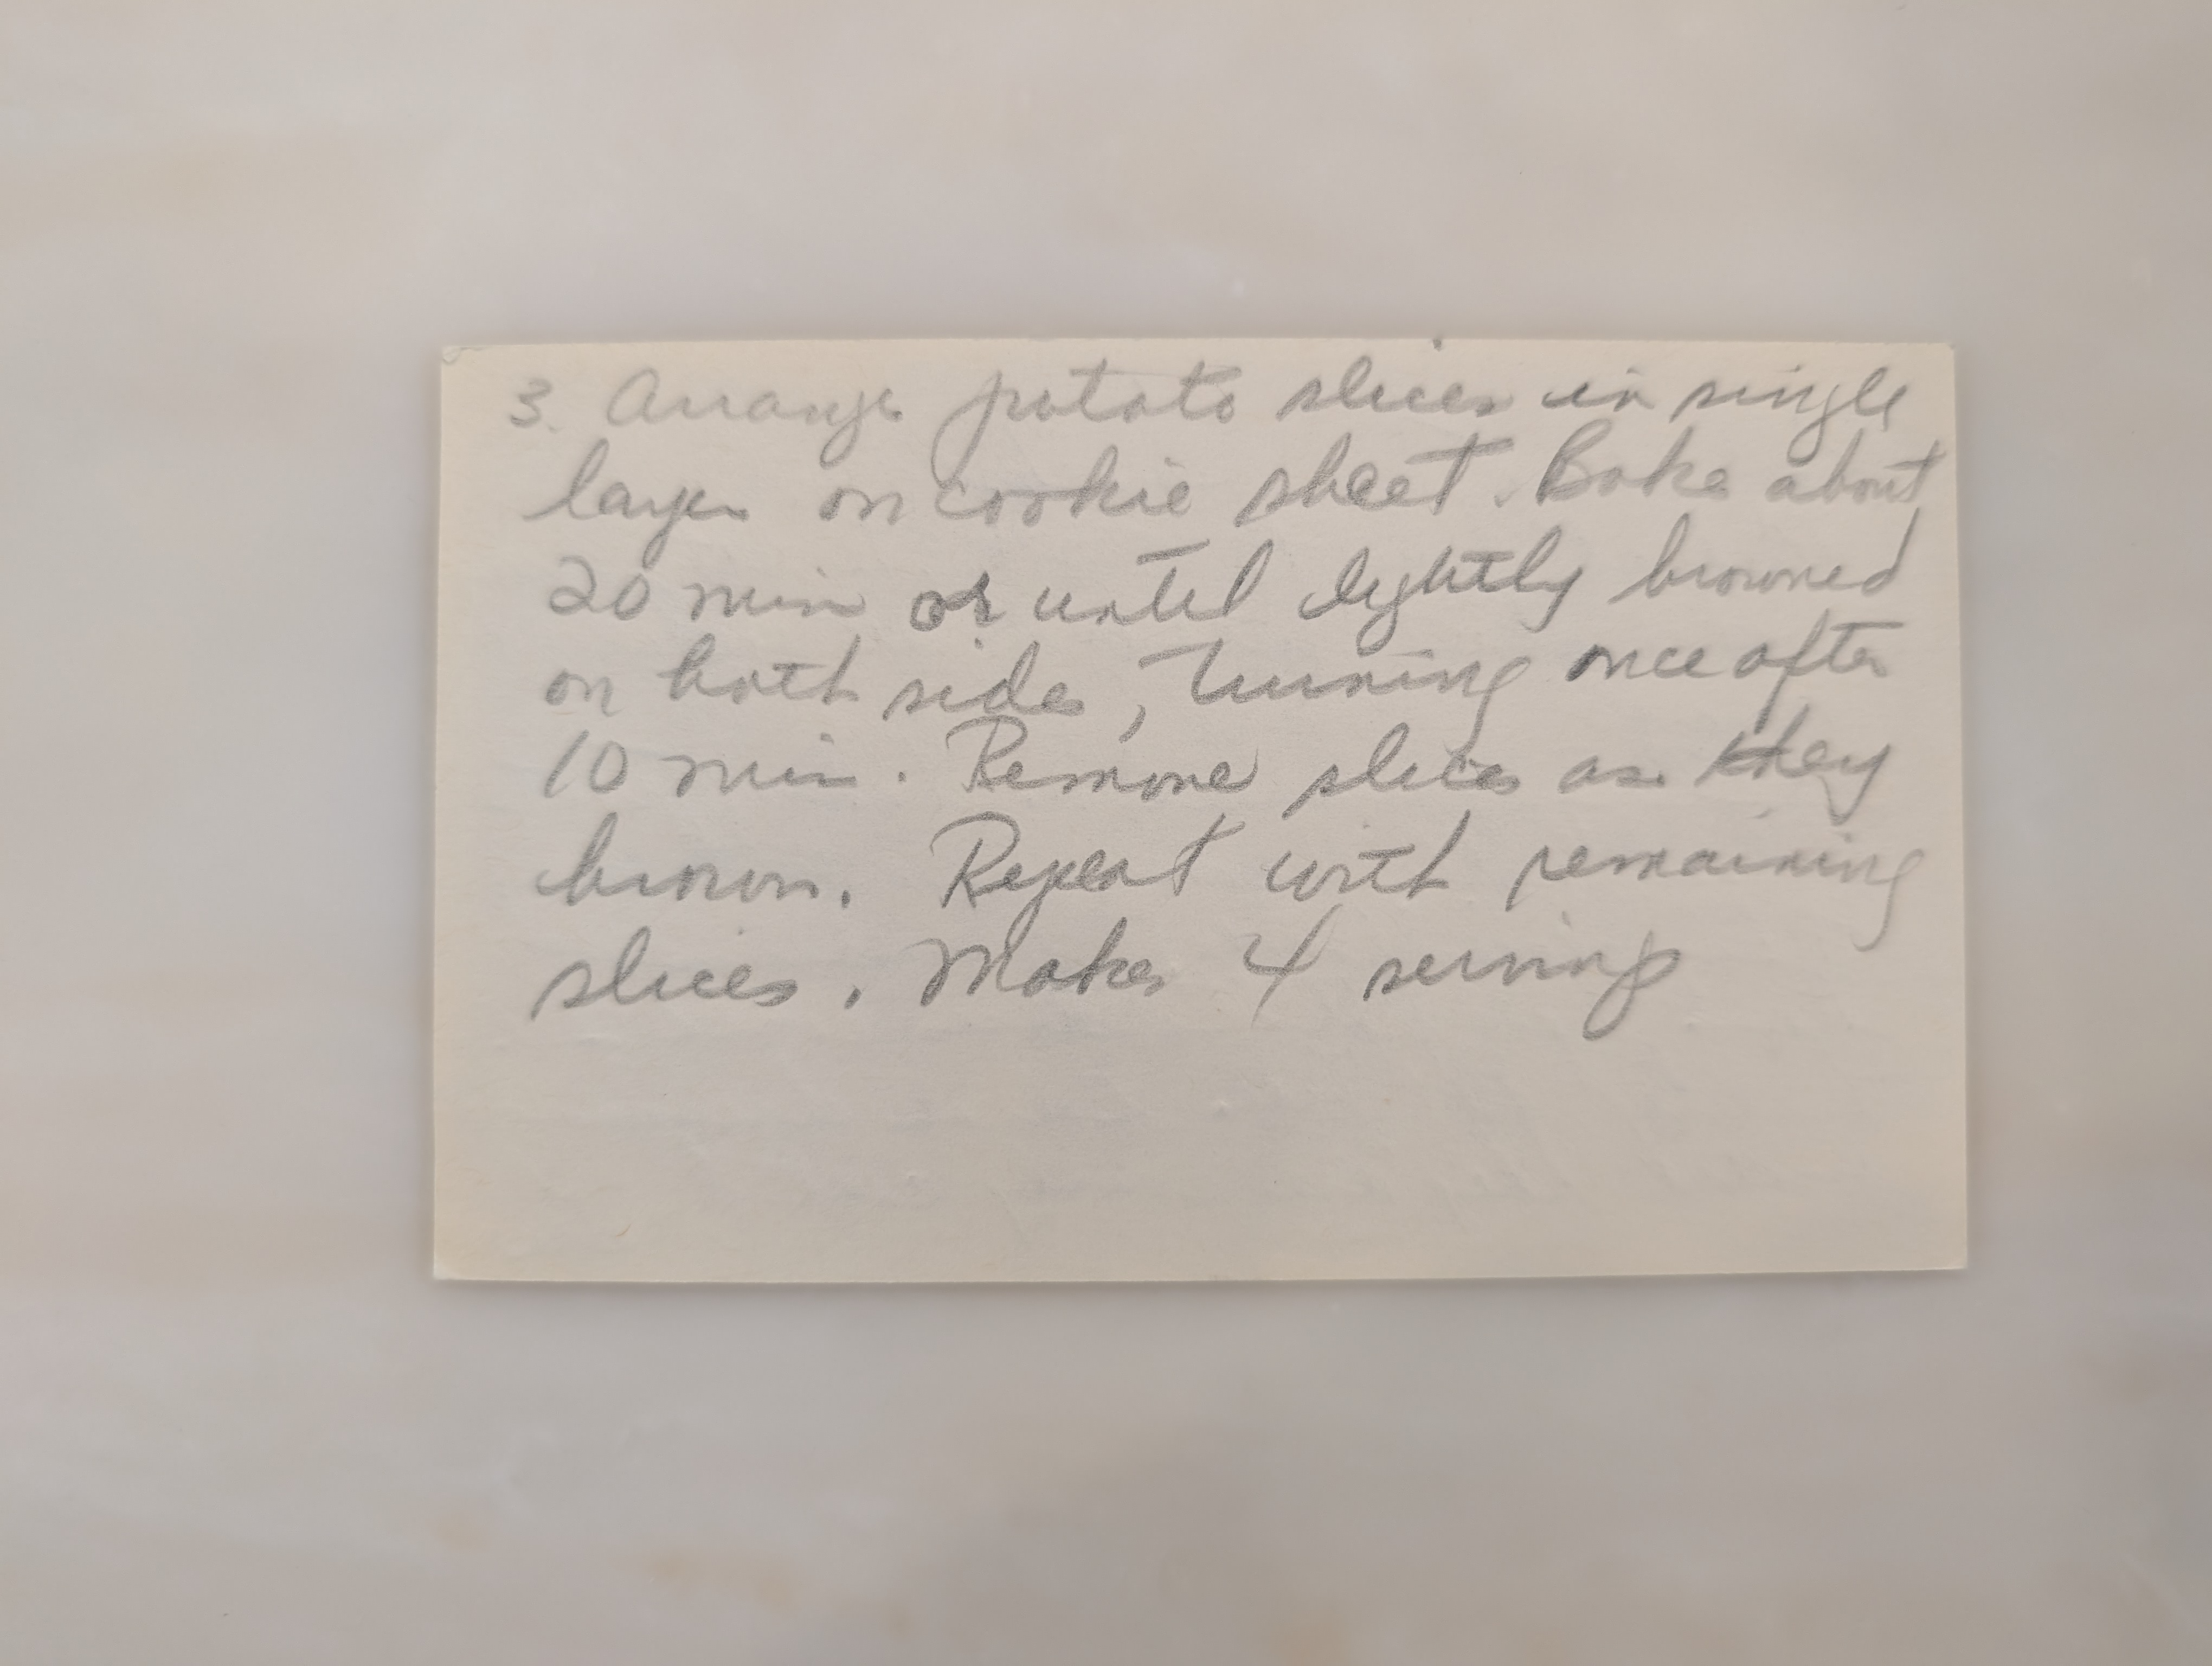 3. Arrange potato slices in single
layer on cookie sheet. Bake about
20 min or until lightly browned
on both sides, turning once after
10 min. Remove slices as they
brown. Repeat with remaining
slices. Makes 4 servings